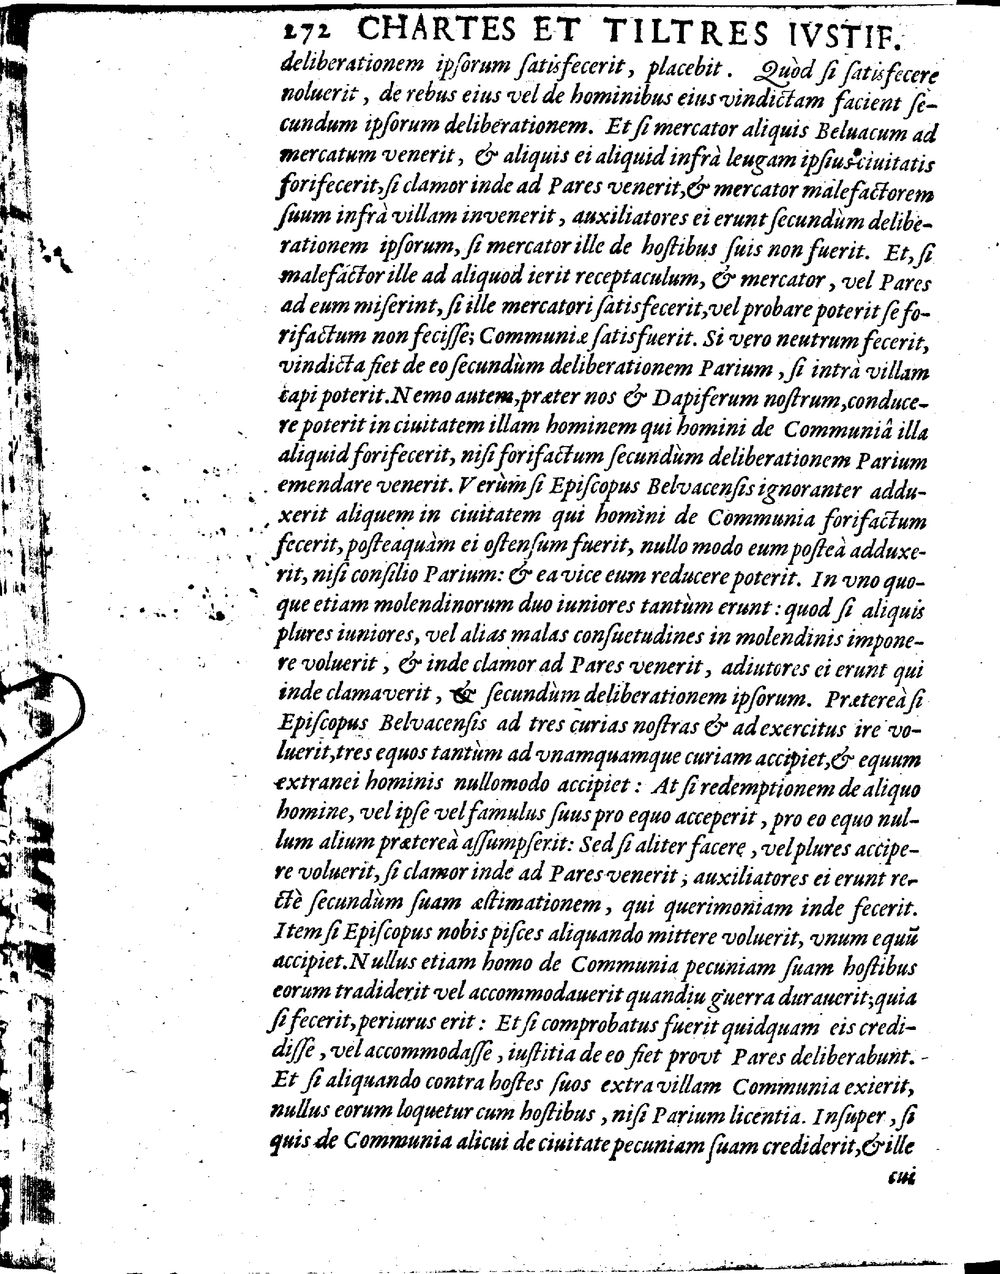 272 CHARTES ET TILTRES IVSTIF.
deliberationem ipſorum ſatisfecerit, placebit. Quòd ſi ſatisfecere
noluerit, de rebus eius vel de hominibus eius vindictam facient ſe-
cundum ipſorum deliberationem. Et ſi mercator aliquis Beluacum ad
mercatum venerit, & aliquis ei aliquid infrà leugam ipſius ciuitatis
forifecerit, ſi clamor inde ad Pares venerit, & mercator malefactorem
ſuum infrà villam invenerit, auxiliatores ei erunt ſecundùm delibe-
rationem ipſorum, ſi mercator ille de hoſtibus ſuis non fuerit. Et, ſi
malefactor ille ad aliquod ierit receptaculum, & mercator, vel Pares
ad eum miſerint, ſi ille mercatori ſatisfecerit, vel probare poterit ſe fo-
rifactum non feciſſe; Communiæ ſatisfuerit. Si vero neutrum fecerit,
vindicta fiet de eo ſecundùm deliberationem Parium, ſi intra villam
capi poterit. Nemo autem, præter nos & Dapiferum noſtrum, conduce-
re poterit in ciuitatem illam hominem qui homini de Communiâ illa
aliquid forifecerit, niſi forifactum ſecundùm deliberationem Parium
emendare venerit. Verùm ſi Epiſcopus Belvacenſis ignoranter addu-
xerit aliquem in ciuitatem qui homini de Communia forifactum
fecerit, poſteaquàm ei oſtenſum fuerit, nullo modo eum poſteà adduxe-
rit, niſi conſilio Parium: & ea vice eum reducere poterit. In vno quo-
que etiam molendinorum duo iuniores tantùm erunt: quod ſi aliquis
plures iuniores, vel alias malas conſuetudines in molendinis impone-
re voluerit, & inde clamor ad Pares venerit, adiutores ei erunt qui
inde clamaverit, & ſecundùm deliberationem ipſorum. Prætereà ſi
Epiſcopus Belvacenſis ad tres curias noſtras & ad exercitus ire vo-
luerit, tres equos tantùm ad vnamquamque curiam accipiet, & equum
extranei hominis nullomodo accipiet: At ſi redemptionem de aliquo
homine, vel ipſe vel famulus ſuus pro equo acceperit, pro eo equo nul-
lum alium prætereà aſſumpſerit: Sed ſi aliter facere, vel plures accipe-
re voluerit, ſi clamor inde ad Pares venerit; auxiliatores ei erunt re-
ctè ſecundùm ſuam æſtimationem, qui querimoniam inde fecerit.
Item ſi Epiſcopus nobis piſces aliquando mittere voluerit, vnum equū
accipiet. Nullus etiam homo de Communia pecuniam ſuam hoſtibus
eorum tradiderit vel accommodauerit quandiu guerra durauerit; quia
ſi fecerit, periurus erit: Et ſi comprobatus fuerit quidquam eis credi-
diſſe, vel accommodaſſe, iuſtitia de eo fiet provt Pares deliberabunt.
Et ſi aliquando contra hoſtes ſuos extra villam Communia exierit,
nullus eorum loquetur cum hoſtibus, niſi Parium licentia. Inſuper, ſi
quis de Communia alicui de ciuitate pecuniam ſuam crediderit, & ille
cui